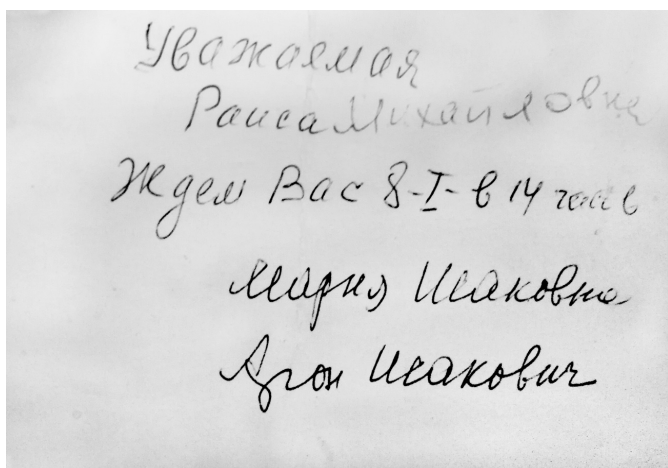 Уважаемая
Раиса Михайловна
Ждем Вас 8-I- в 14 часов
Мария Исаковна
Арон Исакович